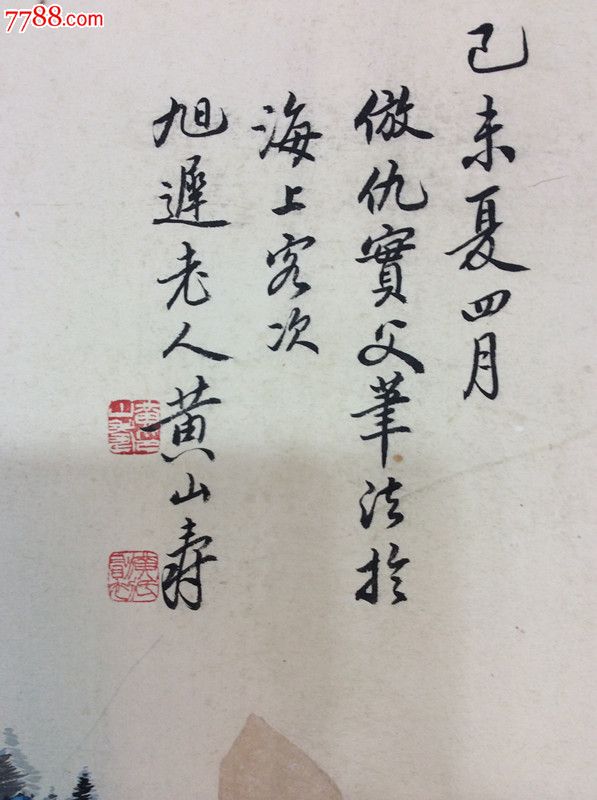 7788.com
己未夏四月
倣仇實父筆法於
海上客次
旭遲老人黄山壽